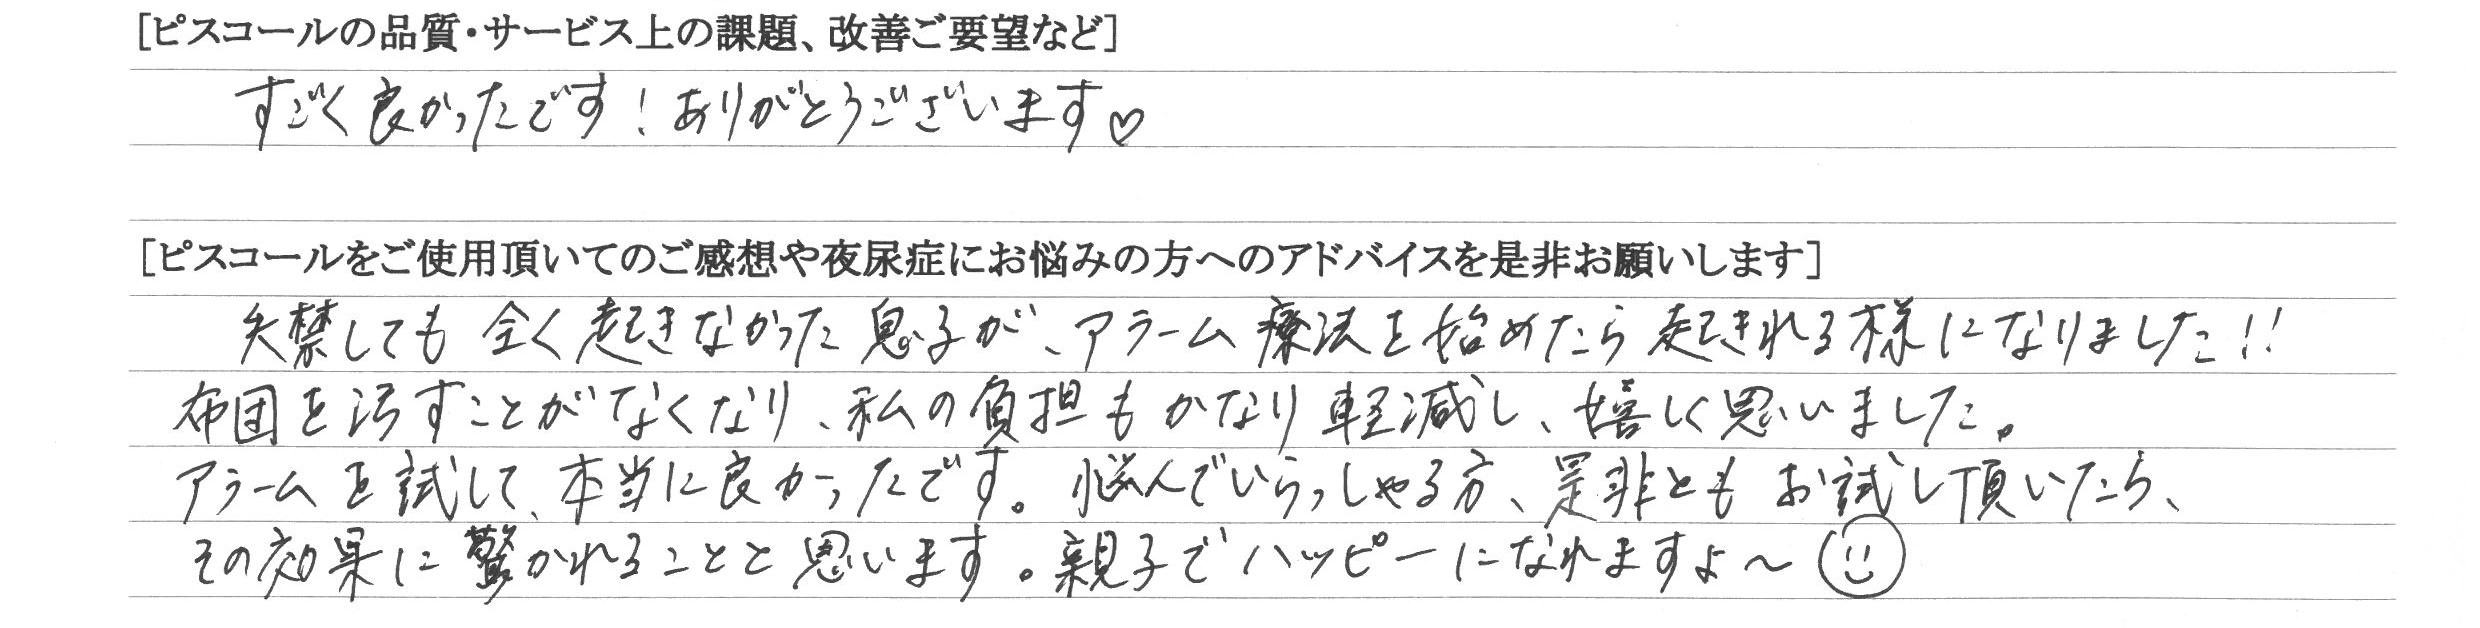 [ピスコールの品質・サービス上の課題、改善ご要望など]
すごく良かったです!ありがとうございます♡
[ピスコールをご使用頂いてのご感想や夜尿症にお悩みの方へのアドバイスを是非お願いします]
失禁しても全く起きなかった息子が、アラーム療法を始めたら起きれる様になりました!!
布団を汚すことがなくなり、私の負担もかなり軽減し、嬉しく思いました。
アラームを試して、本当に良かったです。悩んでいらっしゃる方、是非ともお試し頂いたら、
その効果に驚かれることと思います。親子でハッピーになれますよ~